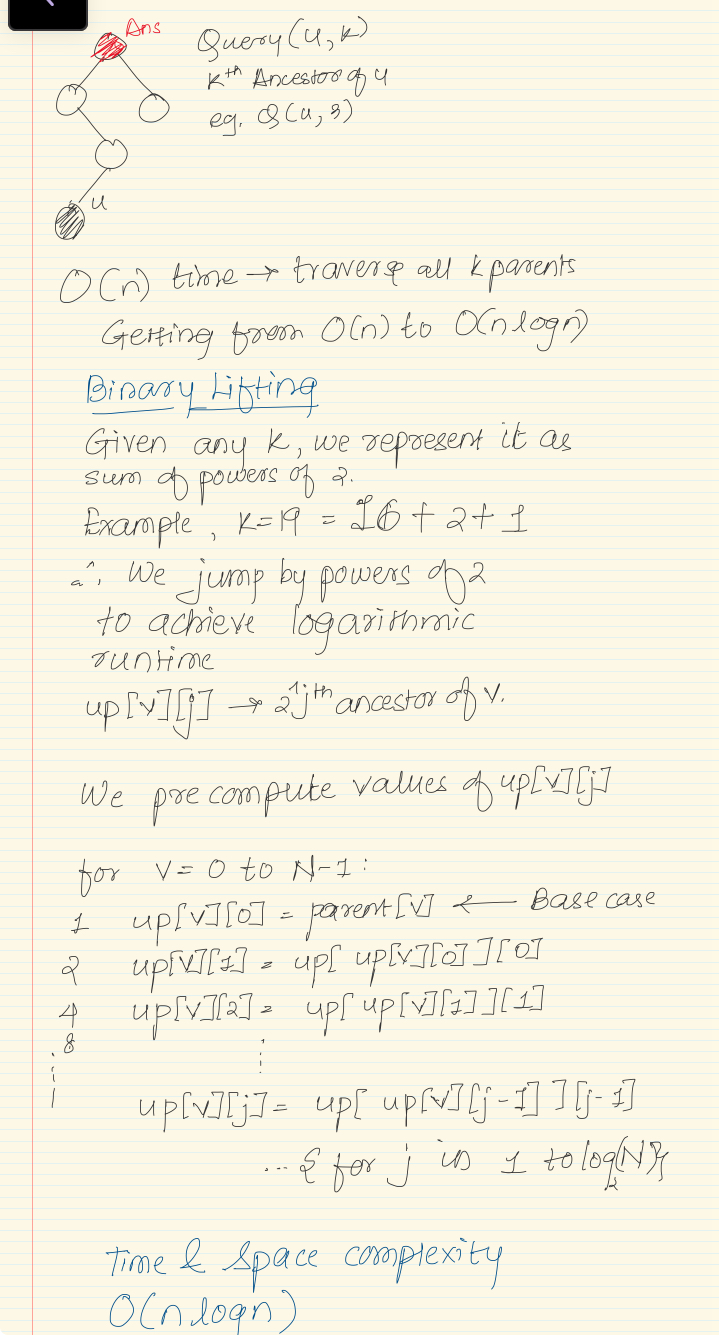 Ans
Query(u,k)
kth Ancestor of u
eg. Q(u,3)
u
O(n) time → traverse all k parents
Getting from O(n) to O(nlogn)
Binary Lifting
Given any k, we represent it as
sum of powers of 2.
Example, k=19 = 16+2+1
∴ We jump by powers of 2
to achieve logarithmic
runtime
up[v][j] → 2^jth ancestor of v.
We precompute values of up[v][j]
for v = 0 to N-1:
1 up[v][0] = parent[v] ← Base case
2 up[v][1] = up[ up[v][0] ][0]
4 up[v][2] = up[ up[v][1] ][1]
8
up[v][j] = up[ up[v][j-1] ][j-1]
... { for j in 1 to log₂(N)}
Time & Space complexity
O(nlogn)